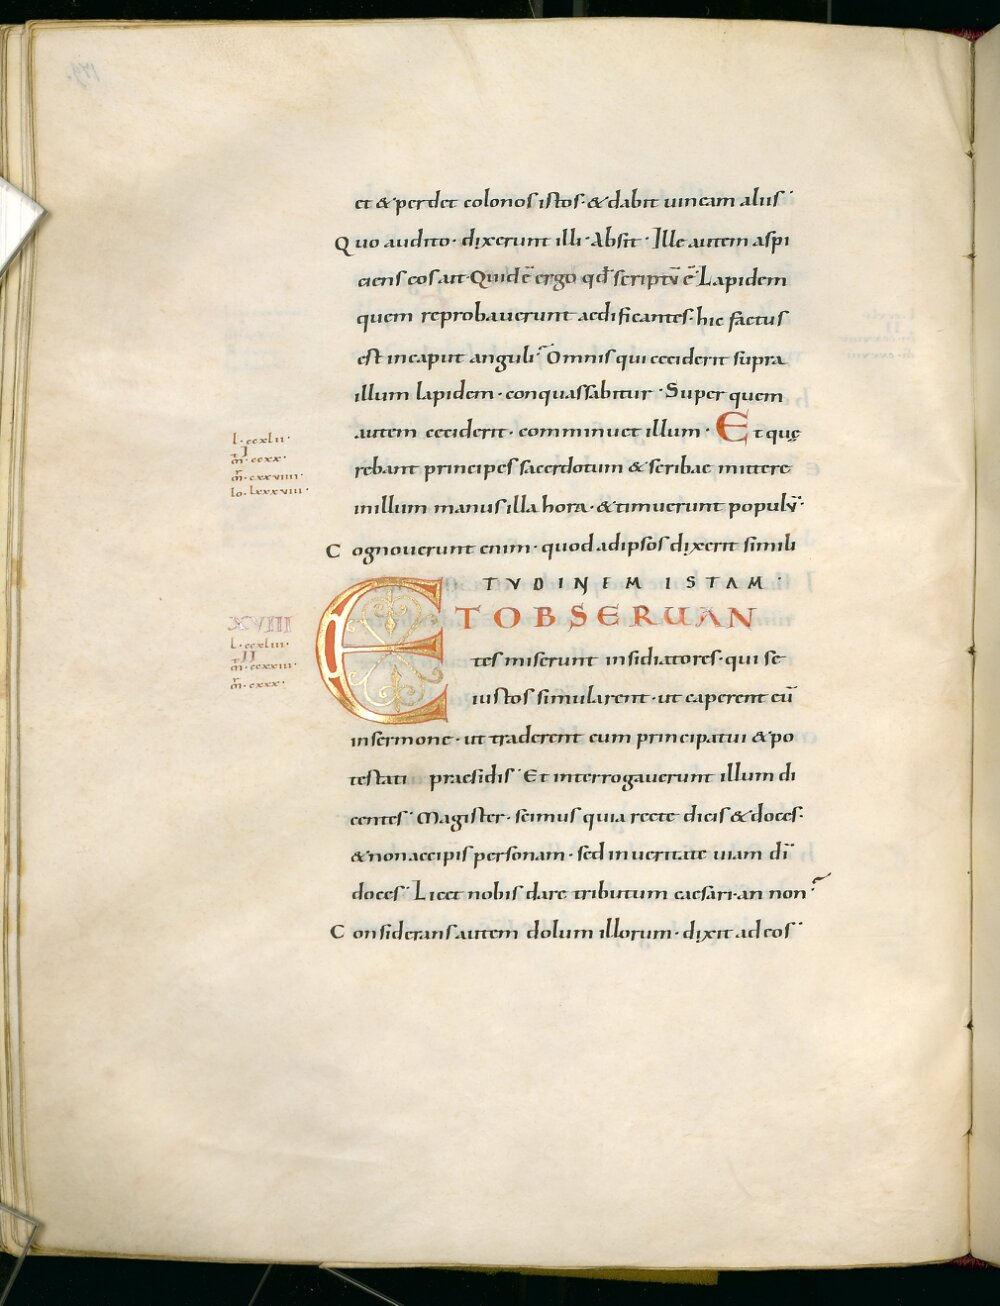 et & perdet colonos istos · & dabit uineam aliis
Quo audito · dixerunt illi · Absit · Ille autem aspi
ciens eos ait · Quid ē ergo qđ scriptū ē Lapidem
quem reprobauerunt aedificantes · hic factus
est in caput anguli Omnis qui ceciderit supra
illum lapidem · conquassabitur · Super quem
autem ceciderit · comminuet illum · Et quę
rebant principes sacerdotum & scribae mittere
in illum manus illa hora · & timuerunt populū ·
Cognouerunt enim · quod ad ipsos dixerit simili
TVDINEM ISTAM ·
ET OBSERUAN
tes miserunt insidiatores · qui se
iustos simularent · ut caperent eū
in sermone · ut traderent eum principatui & po
testati praesidis Et interrogauerunt illum di
centes Magister · scimus quia recte dicis & doces ·
& non accipis personam · sed in ueritate uiam dī
doces Licet nobis dare tributum caesari · an non
Considerans autem dolum illorum · dixit ad eos
l · ccxlii ·
I
m̄ · ccxx ·
m̄ · cxxviiii ·
Io · lxxxviii ·
l · ccxliii ·
II
m̄ · ccxxiii ·
m̄ · cxxx ·